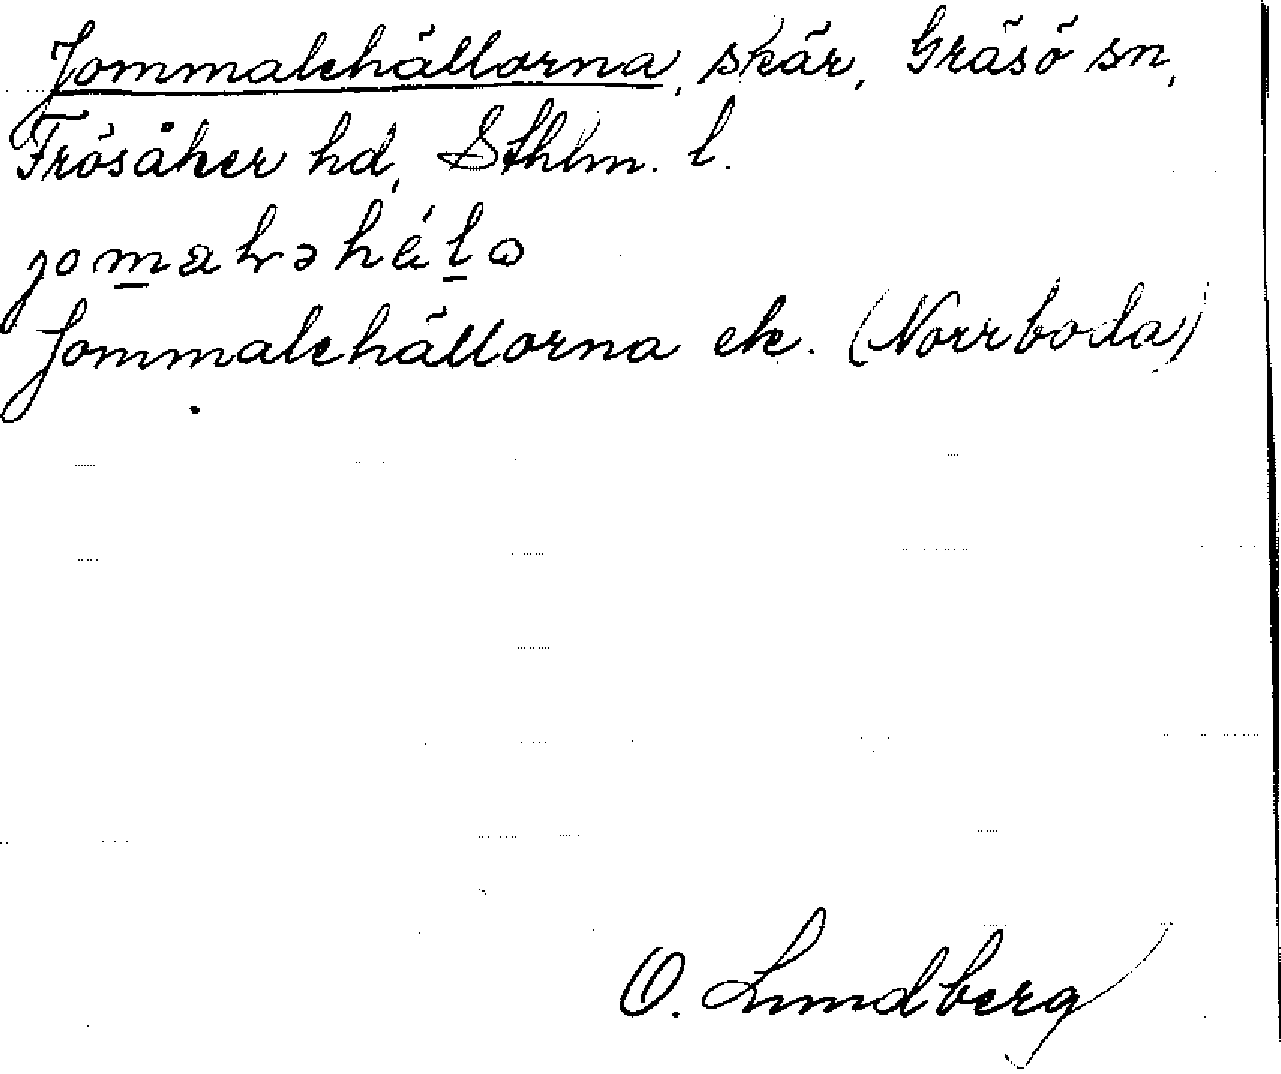 Jommalehällorna, skär, Gräsö sn,
Frösåker hd, Sthlm. l.
Jommalehällorna ek. (Norrboda)
O. Lundberg